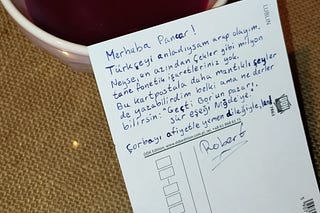 Merhaba Pancar!
Türkçeyi anladıysam arap olayım.
Neyse, en azından Çekler gibi milyon
tane fonetik işaretleriniz yok.
Bu kartpostala daha mantıklı şeyler
de yazabilirdim belki ama ne derler
bilirsin: "Geçti Bor'un pazarı,
sür eşeği Niğde'ye".
Çorbayı afiyetle yemen dileğiyle,
Robert
LUBLIN